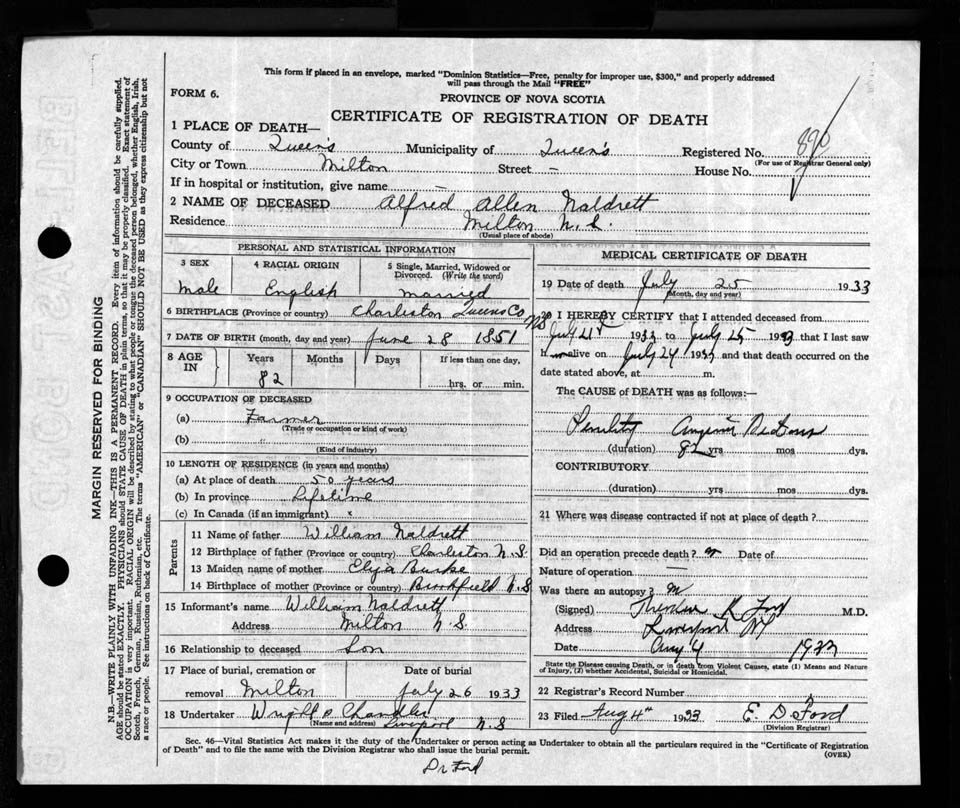 This form if placed in an envelope, marked "Dominion Statistics—Free, penalty for improper use, $300," and properly addressed
will pass through the Mail "FREE"
FORM 6.
PROVINCE OF NOVA SCOTIA
CERTIFICATE OF REGISTRATION OF DEATH
1 PLACE OF DEATH—
County of Queen's Municipality of Queen's Registered No. 890
(For use of Registrar General only)
City or Town Milton Street — House No.
If in hospital or institution, give name —
2 NAME OF DECEASED Alfred Allen Naldrett
Residence Milton N.S.
(Usual place of abode)
PERSONAL AND STATISTICAL INFORMATION
3 SEX
Male
4 RACIAL ORIGIN
English
5 Single, Married, Widowed or
Divorced. (Write the word)
married
6 BIRTHPLACE (Province or country) Charleston Queens Co NS
7 DATE OF BIRTH (month, day and year) June 28 1851
8 AGE IN
Years Months Days If less than one day,
82 hrs. or min.
9 OCCUPATION OF DECEASED
(a) Farmer
(Trade or occupation or kind of work)
(b) "
(Kind of industry)
10 LENGTH OF RESIDENCE (in years and months)
(a) At place of death 50 years
(b) In province Lifetime
(c) In Canada (if an immigrant) x
Parents
11 Name of father William Naldrett
12 Birthplace of father (Province or country) Charleston N.S.
13 Maiden name of mother Eliza Burke
14 Birthplace of mother (Province or country) Brookfield N.S
15 Informant's name William Naldrett
Address Milton N.S.
16 Relationship to deceased Son
17 Place of burial, cremation or Date of burial
removal Milton July 26 1933
18 Undertaker Wright & Chandler
(Name and address) Liverpool N.S
MEDICAL CERTIFICATE OF DEATH
19 Date of death July 25 1933
(Month, day and year)
20 I HEREBY CERTIFY that I attended deceased from
July 21st 1933 to July 25 1933 that I last saw
him alive on July 24 1933 and that death occurred on the
date stated above, at m.
The CAUSE of DEATH was as follows:—
Senility Angina Pectoris
(duration) 82 yrs mos dys.
CONTRIBUTORY.
(duration) yrs mos dys.
21 Where was disease contracted if not at place of death?
Did an operation precede death? no Date of
Nature of operation —
Was there an autopsy? no
(Signed) R Ford M.D.
Address Liverpool NS
Date Aug 4 1933
State the Disease causing Death, or in death from Violent Causes, state (1) Means and Nature
of Injury, (2) whether Accidental, Suicidal or Homicidal.
22 Registrar's Record Number
23 Filed Aug 4th 1933 E. D. Ford
(Division Registrar)
Sec. 46—Vital Statistics Act makes it the duty of the Undertaker or person acting as Undertaker to obtain all the particulars required in the "Certificate of Registration
of Death" and to file the same with the Division Registrar who shall issue the burial permit.
(OVER)
Dr Ford
MARGIN RESERVED FOR BINDING
N.B.—WRITE PLAINLY WITH UNFADING INK—THIS IS A PERMANENT RECORD. Every item of information should be carefully supplied.
AGE should be stated EXACTLY. PHYSICIANS should STATE CAUSE OF DEATH in plain terms, so that it may be properly classified. Exact statement of
OCCUPATION is very important. RACIAL ORIGIN will be described by stating to what people or tongue the deceased person belonged, whether English, Irish,
Scotch, French, German, Russian, Ruthenian, etc. The terms "AMERICAN" or "CANADIAN" SHOULD NOT BE USED as they express citizenship but not
a race or people. See instructions on back of Certificate.